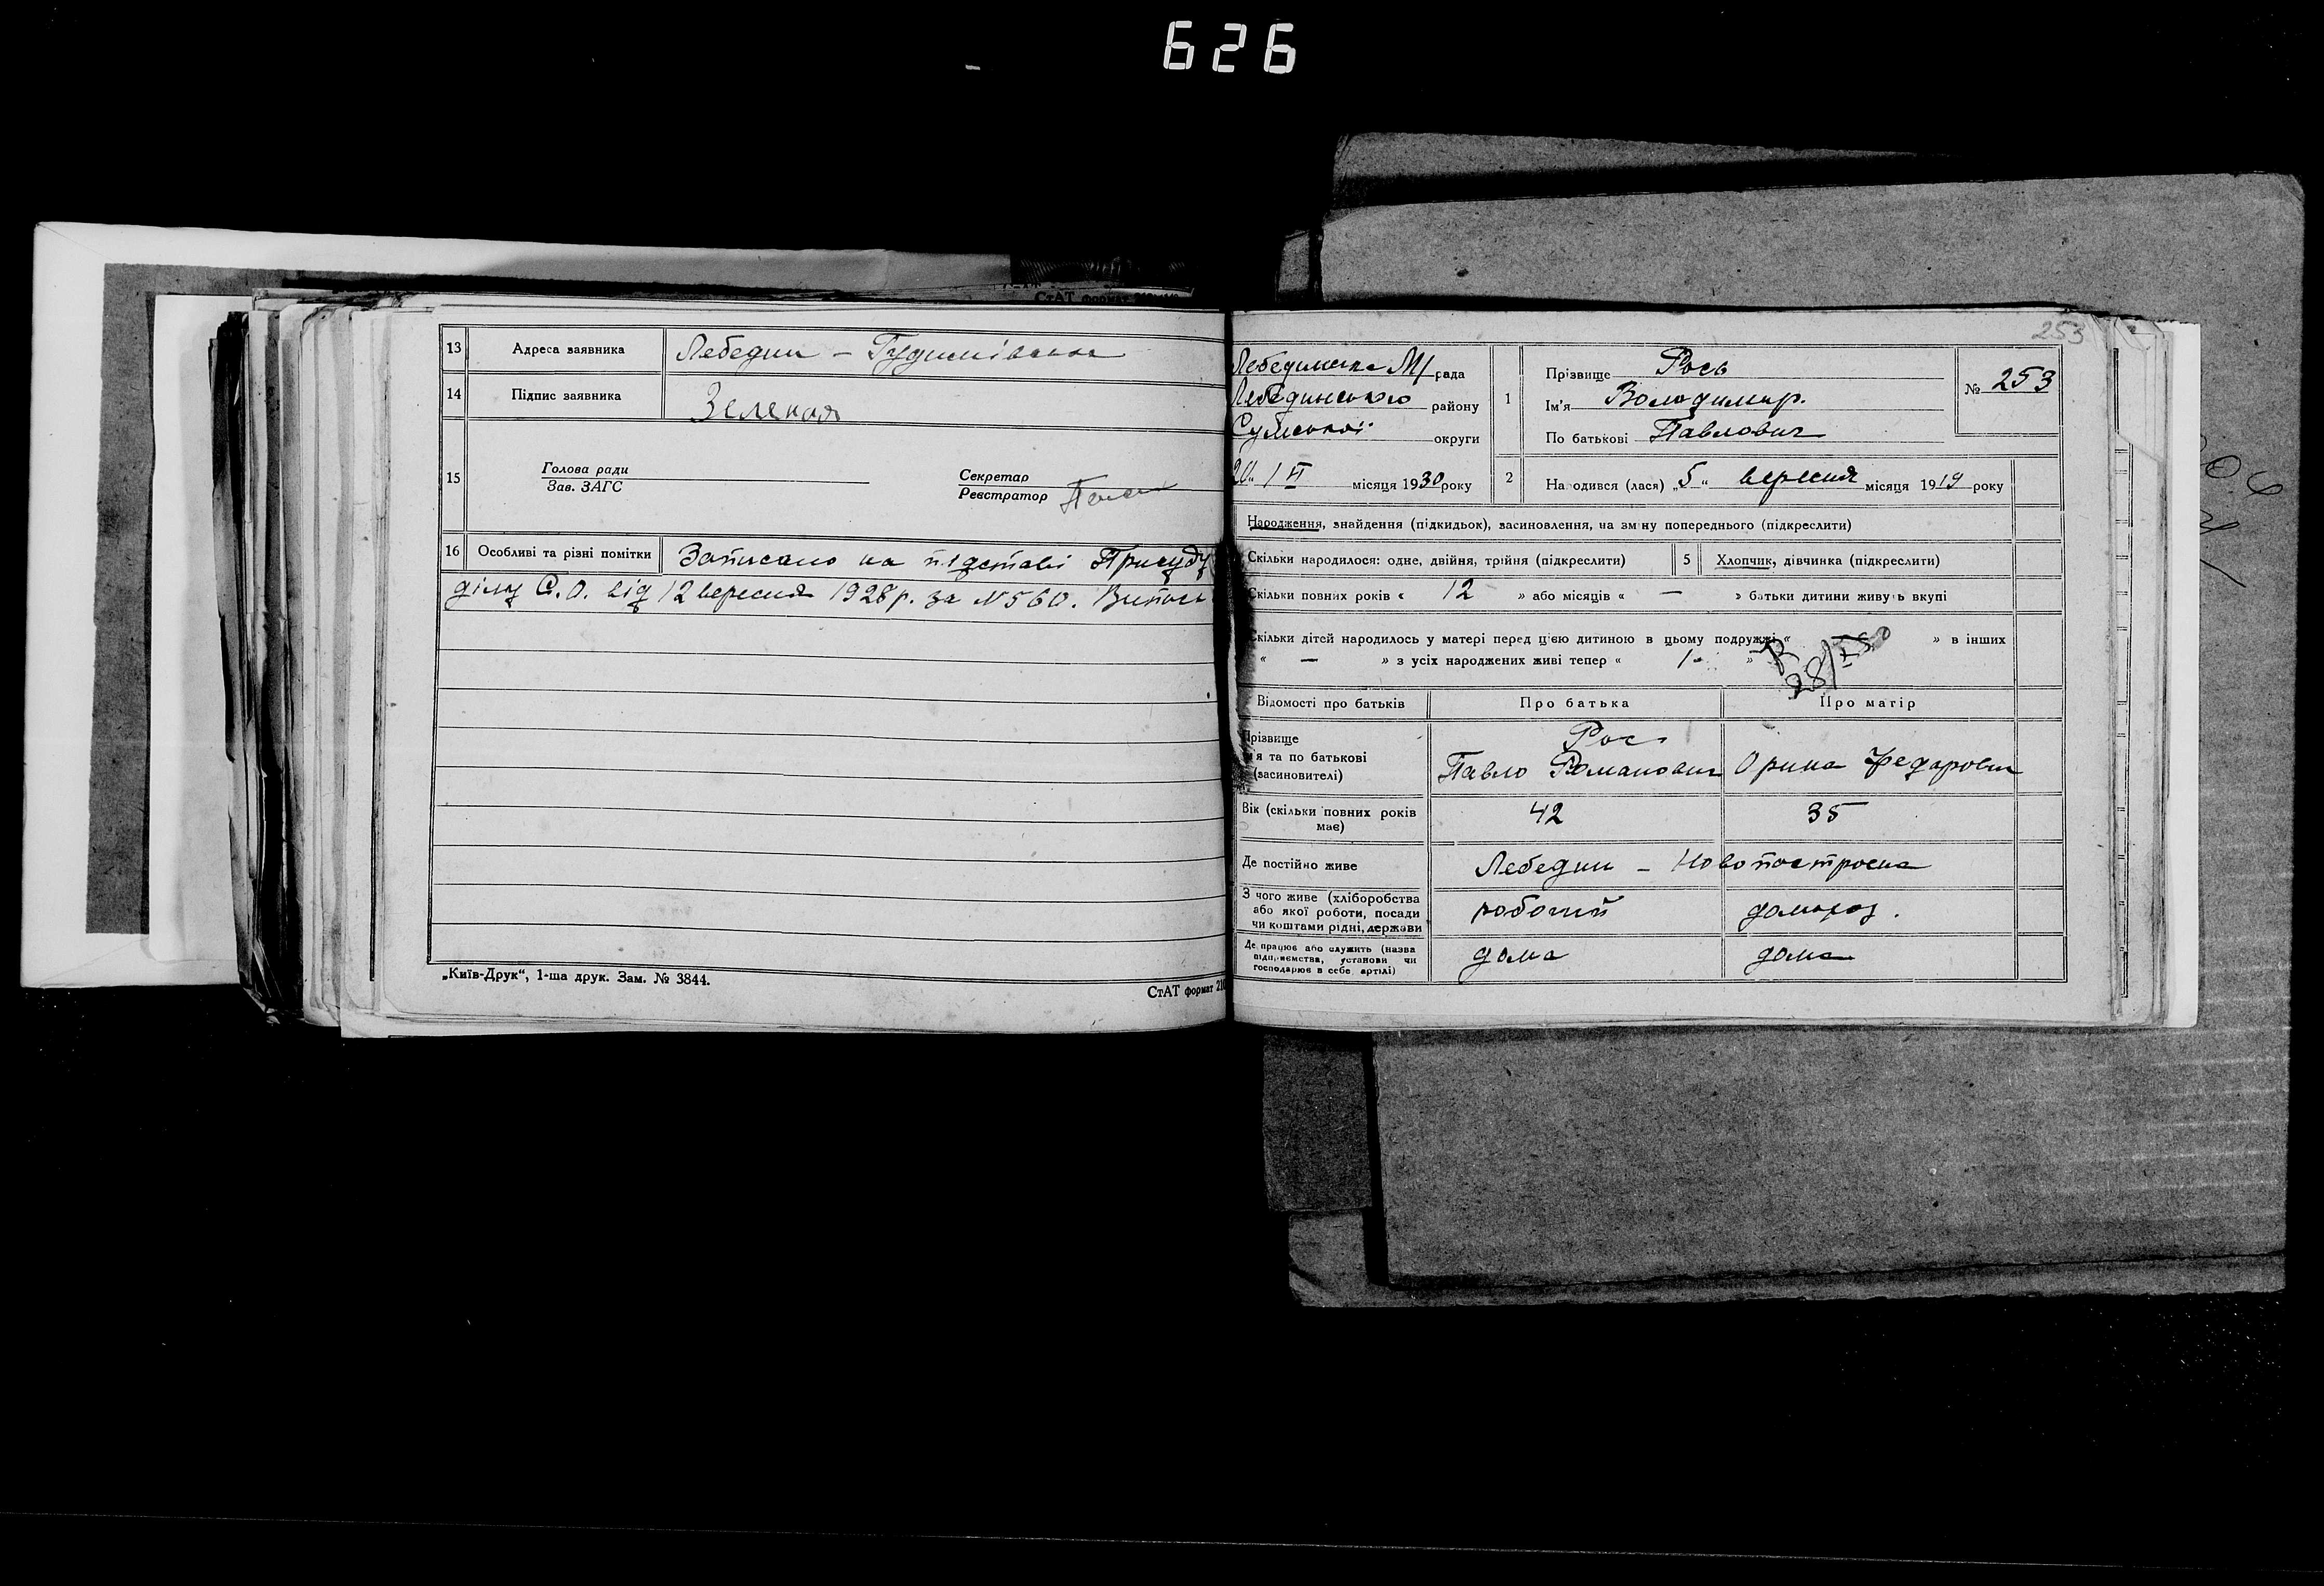 626
СтАТ формат
13 Адреса заявника Лебедин – Гудимівка
14 Підпис заявника Зеленая
15 Голова ради
Зав. ЗАГС
Секретар
Реєстратор
16 Особливі та різні помітки Записано на підставі Присуду
ділу С.О. від 12 вересня 1928 р. за №560.
„Київ-Друк“, 1-ша друк. Зам. № 3844.
СтАТ формат 210
253
Лебединська М/рада
Лебединського району
Сумської округи
20 " / VI місяця 1930 року
1 Прізвище Рось
Ім'я Володимир.
По батькові Павлович
№ 253
2 На одився (лася) „5" вересня місяця 1919 року
Народження, знайдення (підкидьок), засиновлення, на зміну попереднього (підкреслити)
Скільки народилося: одне, двійня, трійня (підкреслити) 5 Хлопчик, дівчинка (підкреслити)
Скільки повних років « 12 » або місяців « — » батьки дитини живуть вкупі
Скільки дітей народилось у матері перед цією дитиною в цьому подружжі « » в інших
« — » з усіх народжених живі тепер « 1 »
Відомості про батьків Про батька Про матір
Прізвище
я та по батькові
(засиновителі)
Рось
Павло Романович Орина Федоровн
Вік (скільки повних років має) 42 35
Де постійно живе Лебедин – Новопостроена
З чого живе (хліборобства
або якої роботи, посади
чи коштами рідні, держави
робочий домогос.
Де працює або служить (назва
підприємства, установи чи
господарює в себе, артілі)
дома дома